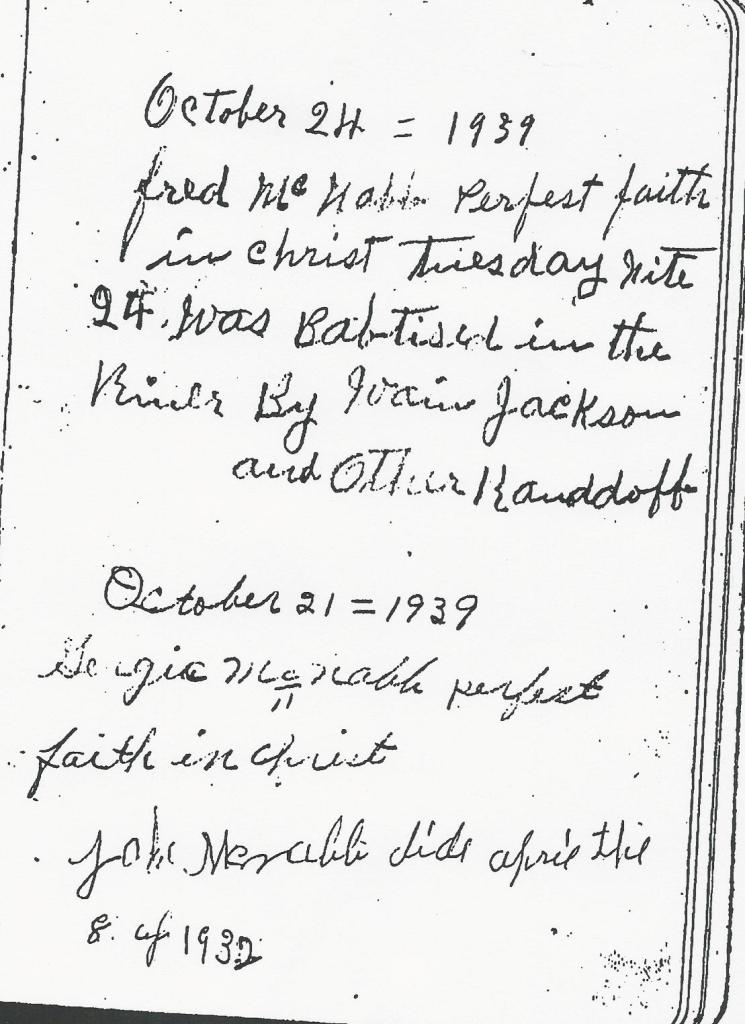 October 24 = 1939
fred Mc Nabb Perfest faith
in christ Tuesday Nite
24. Was Babtised in the
River By Jackson
and Other
October 21 = 1939
Georgia Mc nabb perfest
faith in christ
Mcnabb did april the
8. of 1932